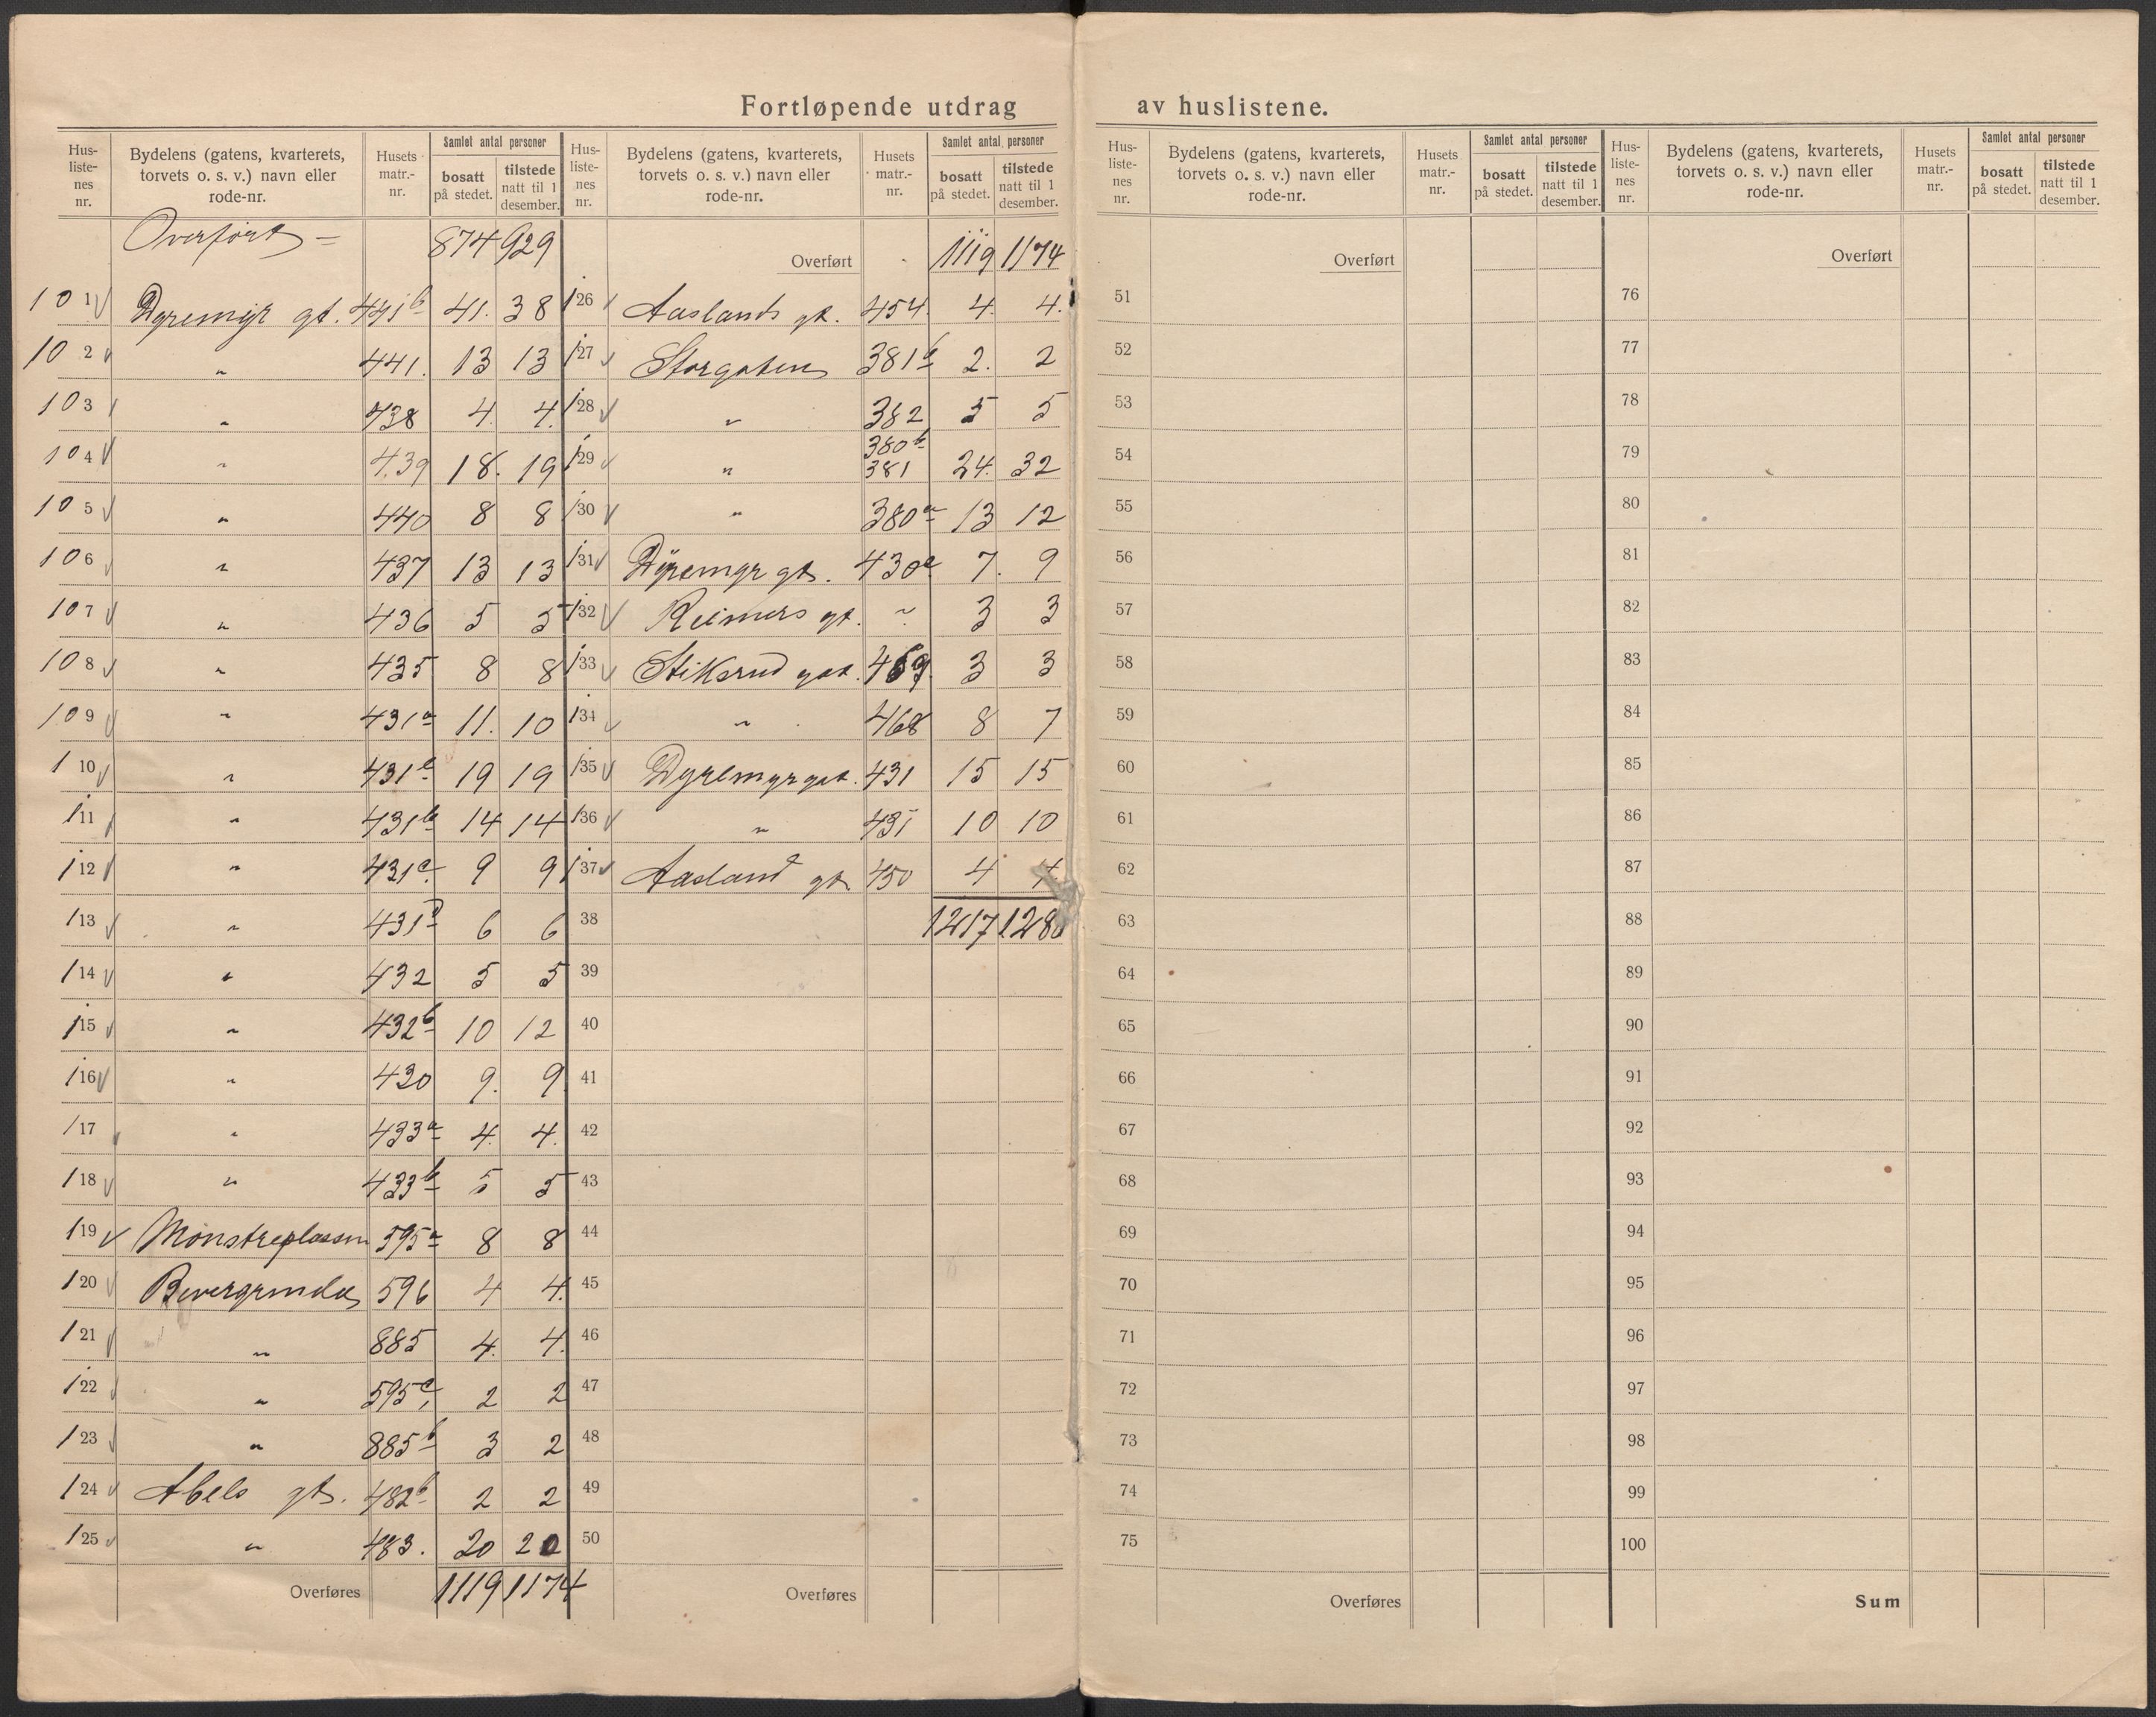 Fortløpende utdrag av huslistene.
Hus-listenes nr. | Bydelens (gatens, kvarterets, torvets o. s. v.) navn eller rode-nr. | Husets matr.-nr. | Samlet antal personer: bosatt på stedet. | tilstede natt til 1 desember.
Overført – 874 929
101 Dyremyr gt. 441b 41. 38
102 " 441. 13 13
103 " 438 4. 4.
104 " 439 18. 19
105 " 440 8 8
106 " 437 13 13
107 " 436 5 5
108 " 435 8 8
109 " 431a 11. 10
110 " 431b 19 19
111 " 431b 14 14
112 " 431c. 9 9
113 " 431d 6 6
114 " 432 5 5
115 " 432b 10 12
116 " 430 9. 9
117 " 433a 4. 4.
118 " 433b 5 5
119 Mønstreplassen 595a 8 8
120 Bevergrenda 596 4 4.
121 " 885 4. 4.
122 " 595c, 2 2
123 " 885b 3 2
124 Abels gt. 482b 2 2
125 " 483. 20 20
Overføres 1119 1174
Hus-listenes nr. | Bydelens (gatens, kvarterets, torvets o. s. v.) navn eller rode-nr. | Husets matr.-nr. | Samlet antal personer: bosatt på stedet. | tilstede natt til 1 desember.
Overført 1119 1174
126 Aaslands gt. 454. 4. 4.
127 Storgaten 381b 2. 2
128 " 382 5 5
129 " 380b 381 24. 32
130 " 380a 13 12
131 Dyremyr gt. 430a 7. 9
132 Reimers gt. " 3 3
133 Stiksrud gat. 469. 3 3
134 " 468 8 7
135 Dyremyrgat. 431 15 15
136 " 431 10 10
137 Aasland gt. 450 4 4
38 1217 1280
39
40
41
42
43
44
45
46
47
48
49
50
Overføres
Hus-listenes nr. | Bydelens (gatens, kvarterets, torvets o. s. v.) navn eller rode-nr. | Husets matr.-nr. | Samlet antal personer: bosatt på stedet. | tilstede natt til 1 desember.
Overført
51
52
53
54
55
56
57
58
59
60
61
62
63
64
65
66
67
68
69
70
71
72
73
74
75
Overføres
Hus-listenes nr. | Bydelens (gatens, kvarterets, torvets o. s. v.) navn eller rode-nr. | Husets matr.-nr. | Samlet antal personer: bosatt på stedet. | tilstede natt til 1 desember.
Overført
76
77
78
79
80
81
82
83
84
85
86
87
88
89
90
91
92
93
94
95
96
97
98
99
100
Sum